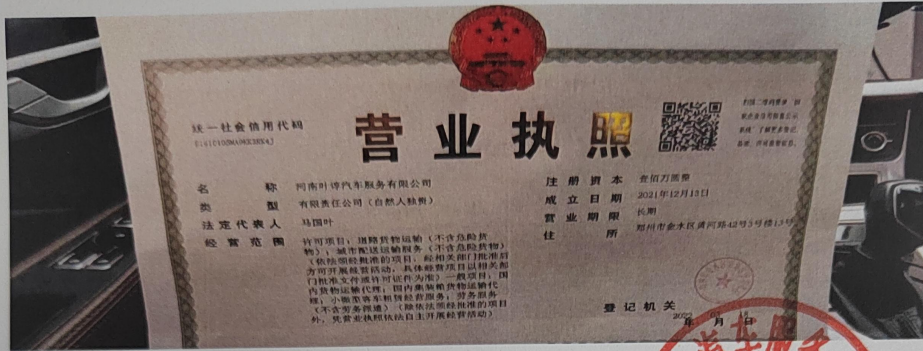 营业执照
统一社会信用代码
扫描二维码登录
名 称 河南叶谆汽车服务有限公司
类 型 有限责任公司（自然人独资）
法定代表人 马国叶
经营范围 许可项目：道路货物运输（不含危险货
物）；城市配送运输服务（不含危险货物）
（依法须经批准的项目，经相关部门批准后
方可开展经营活动，具体经营项目以相关部
门批准文件或许可证件为准）一般项目：国
内货物运输代理；国内集装箱货物运输代
理；小微型客车租赁经营服务；劳务服务
（不含劳务派遣）（除依法须经批准的项目
外，凭营业执照依法自主开展经营活动）
注册资本 壹佰万圆整
成立日期 2021年12月13日
营业期限 长期
住 所 郑州市金水区黄河路42号3号楼13号
登记机关
2022年 月 日
汽车服务